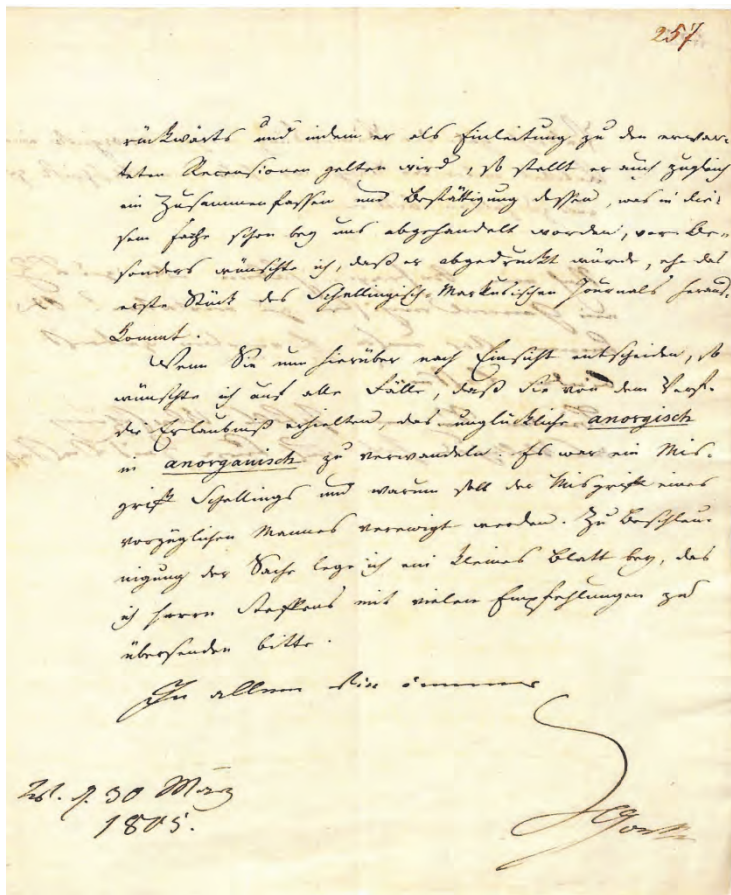 257
rückwärts und indem er als Einleitung zu den erwar-
teten Recensionen gelten wird, so stellt er auch zugleich
ein Zusammenfassen und Bestättigung dessen, was in die-
sem Fache schon bey uns abgehandelt worden, vor. Be-
sonders wünschte ich, daß er abgedruckt würde, ehe das
erste Stück des Schellingisch-Markusischen Journals heraus-
kommt.
Wenn Sie nun hierüber nach Einsicht entscheiden, so
wünschte ich auf alle Fälle, daß Sie von dem Verf.
die Erlaubniß erhielten, das unglückliche anorgisch
in anorganisch zu verwandeln. Es war ein Mis-
griff Schellings und warum soll der Misgriff eines
vorzüglichen Mannes verewigt werden. Zu Beschleu-
nigung der Sache lege ich ein kleines Blatt bey, das
ich Herrn Steffens mit vielen Empfehlungen zu
übersenden bitte.
In allem wie immer
W. d. 30 März
1805.
JWGoethe